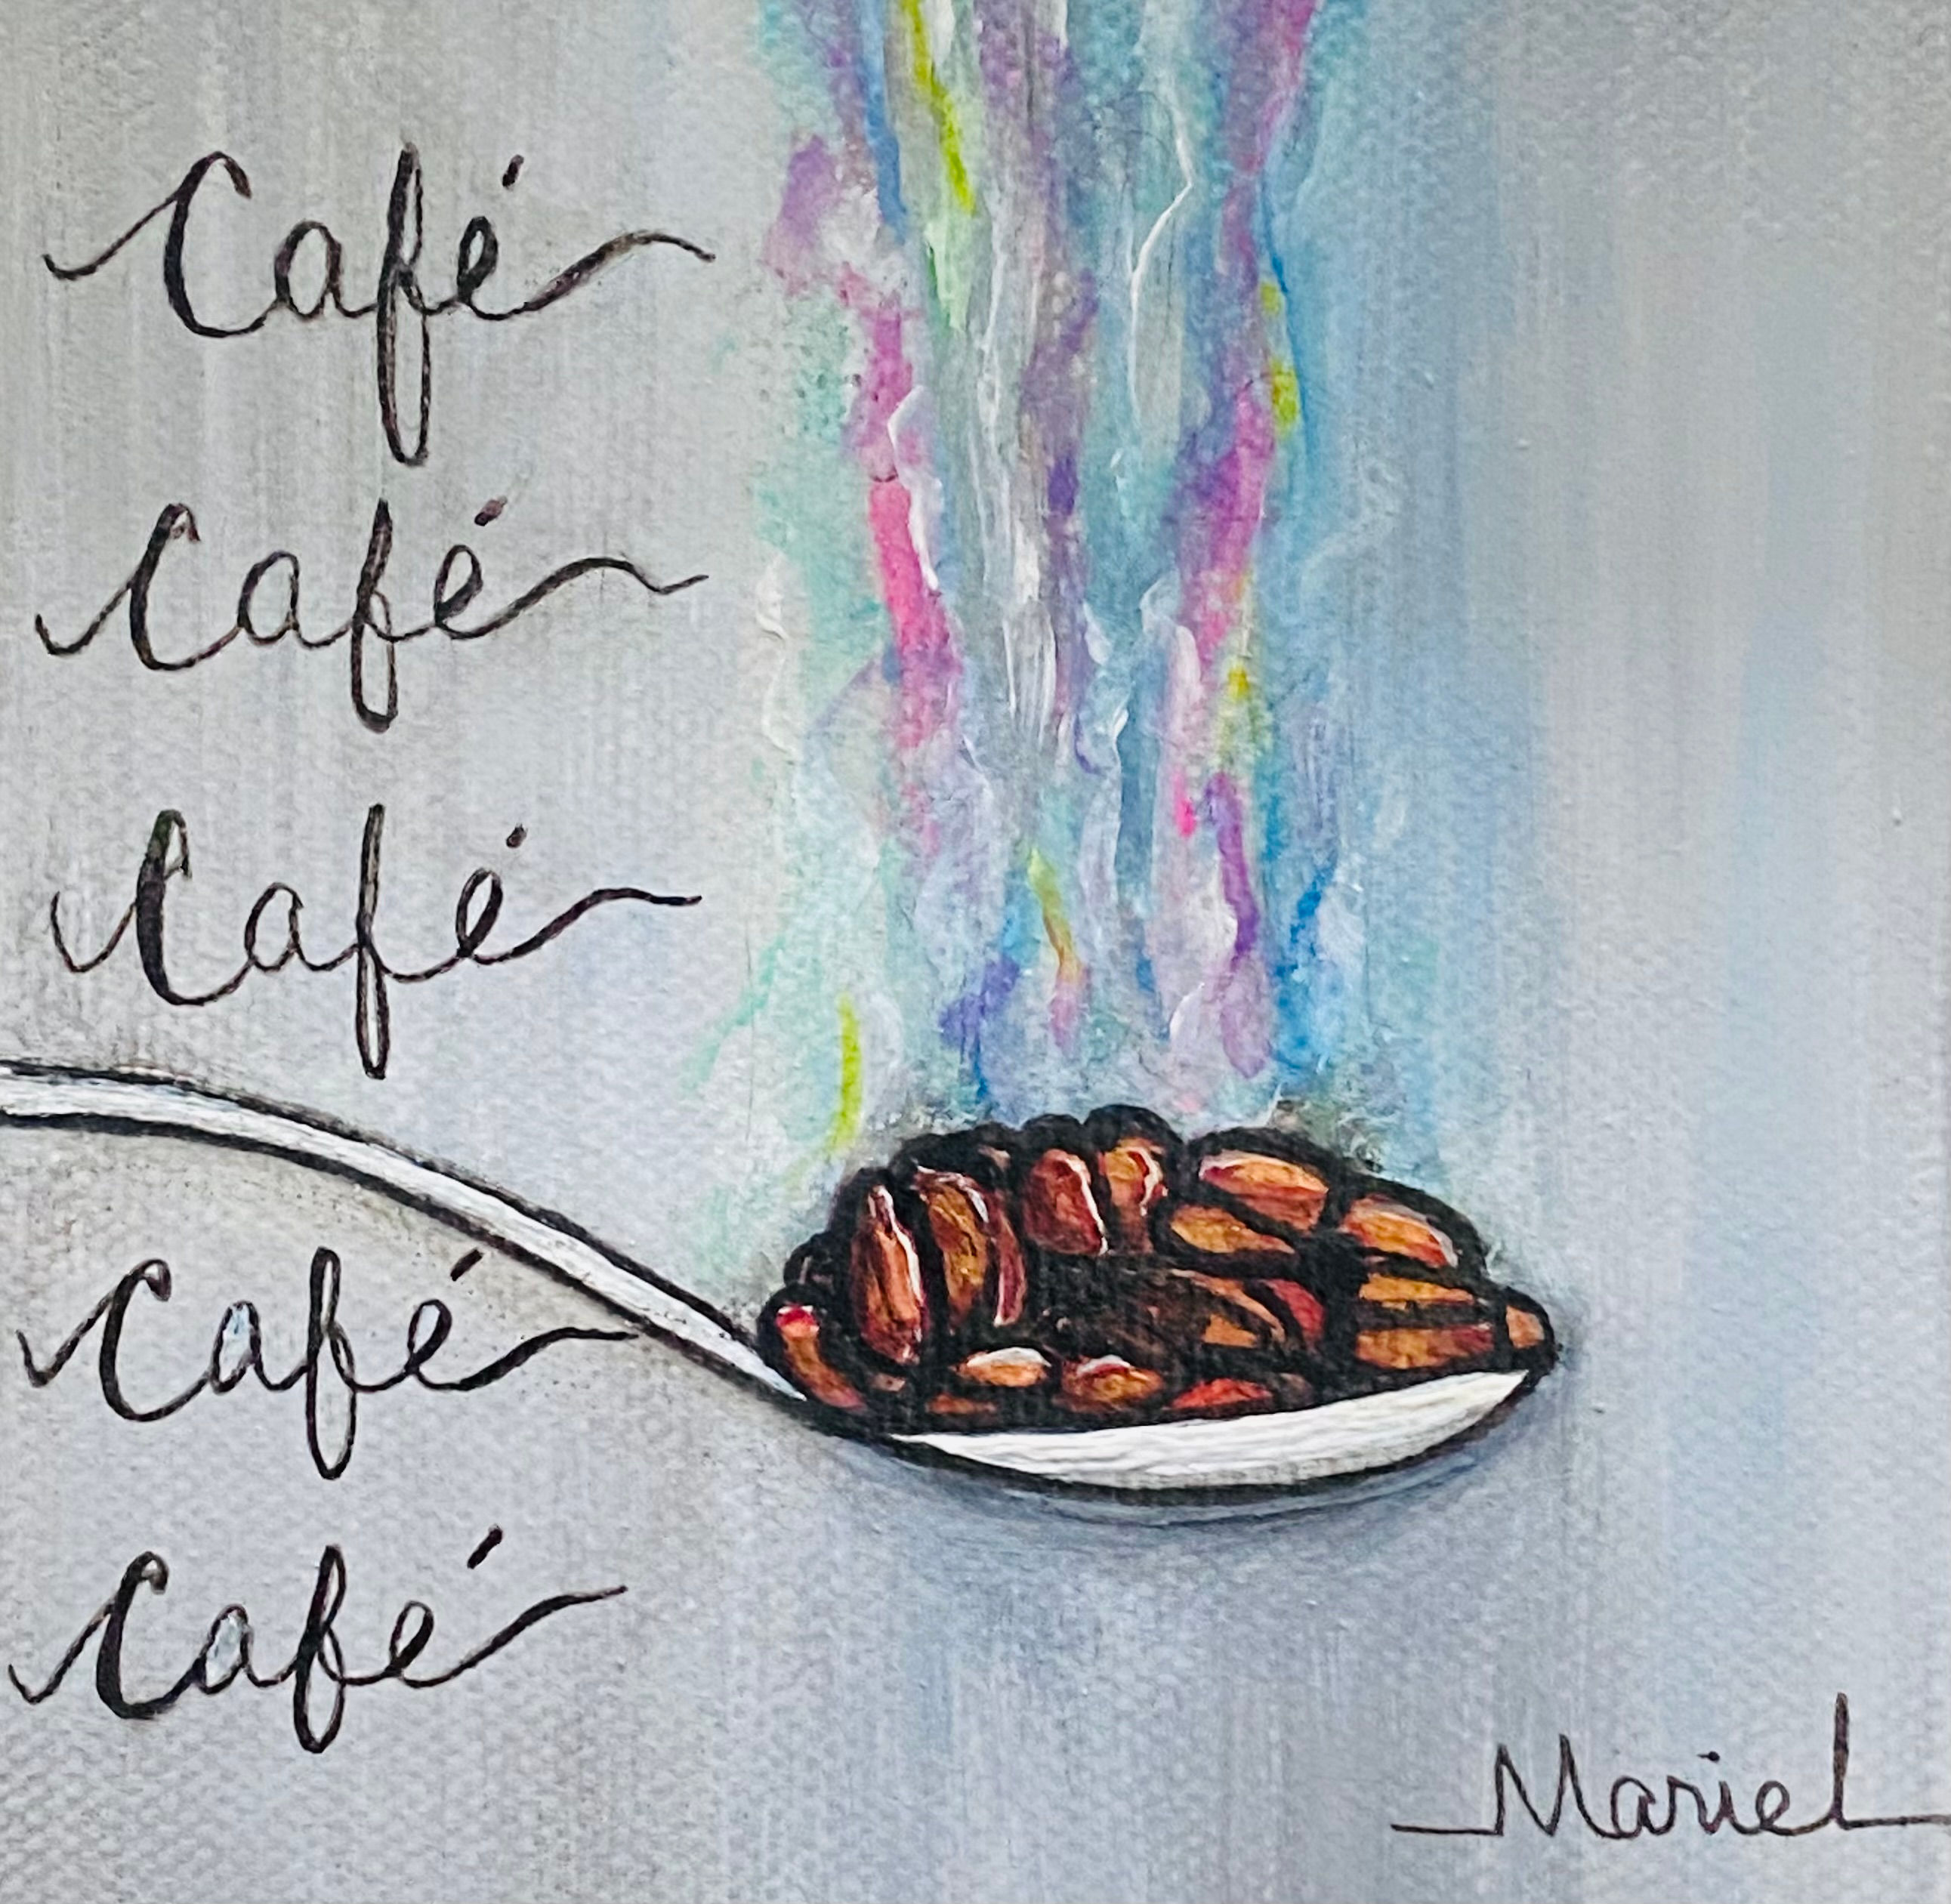 Café
Café
Café
Café
Café
Mariel